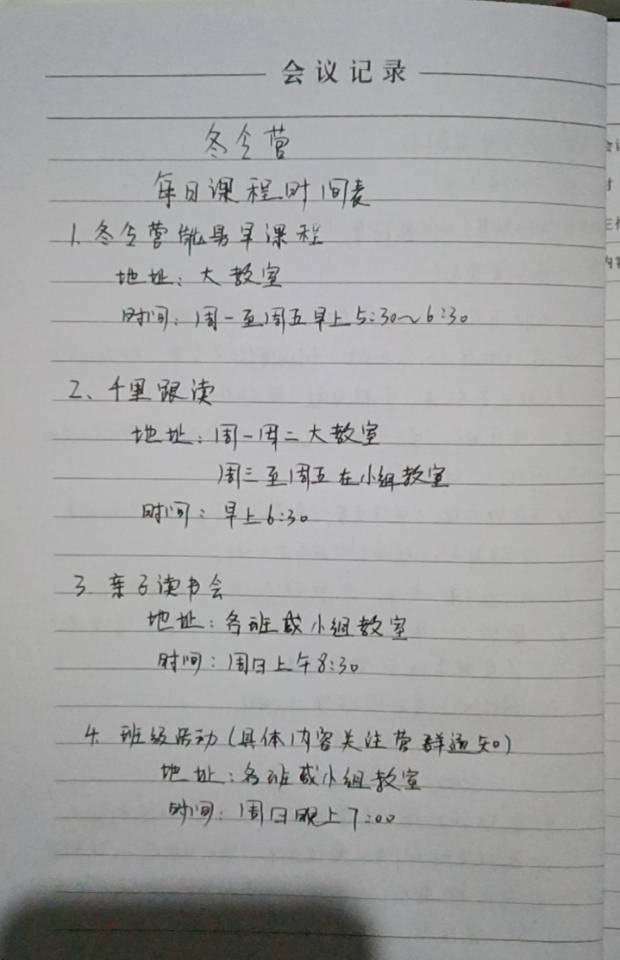 会议记录
冬令营
每日课程时间表
1. 冬令营能易早课程
地址：大教室
时间：周一至周五早上5:30～6:30
2、千里跟读
地址：周一周二大教室
周三至周五在小组教室
时间：早上6:30
3. 亲子读书会
地址：各班或小组教室
时间：周日上午8:30
4. 班级活动(具体内容关注营群通知)
地址：各班或小组教室
时间：周日晚上7:00